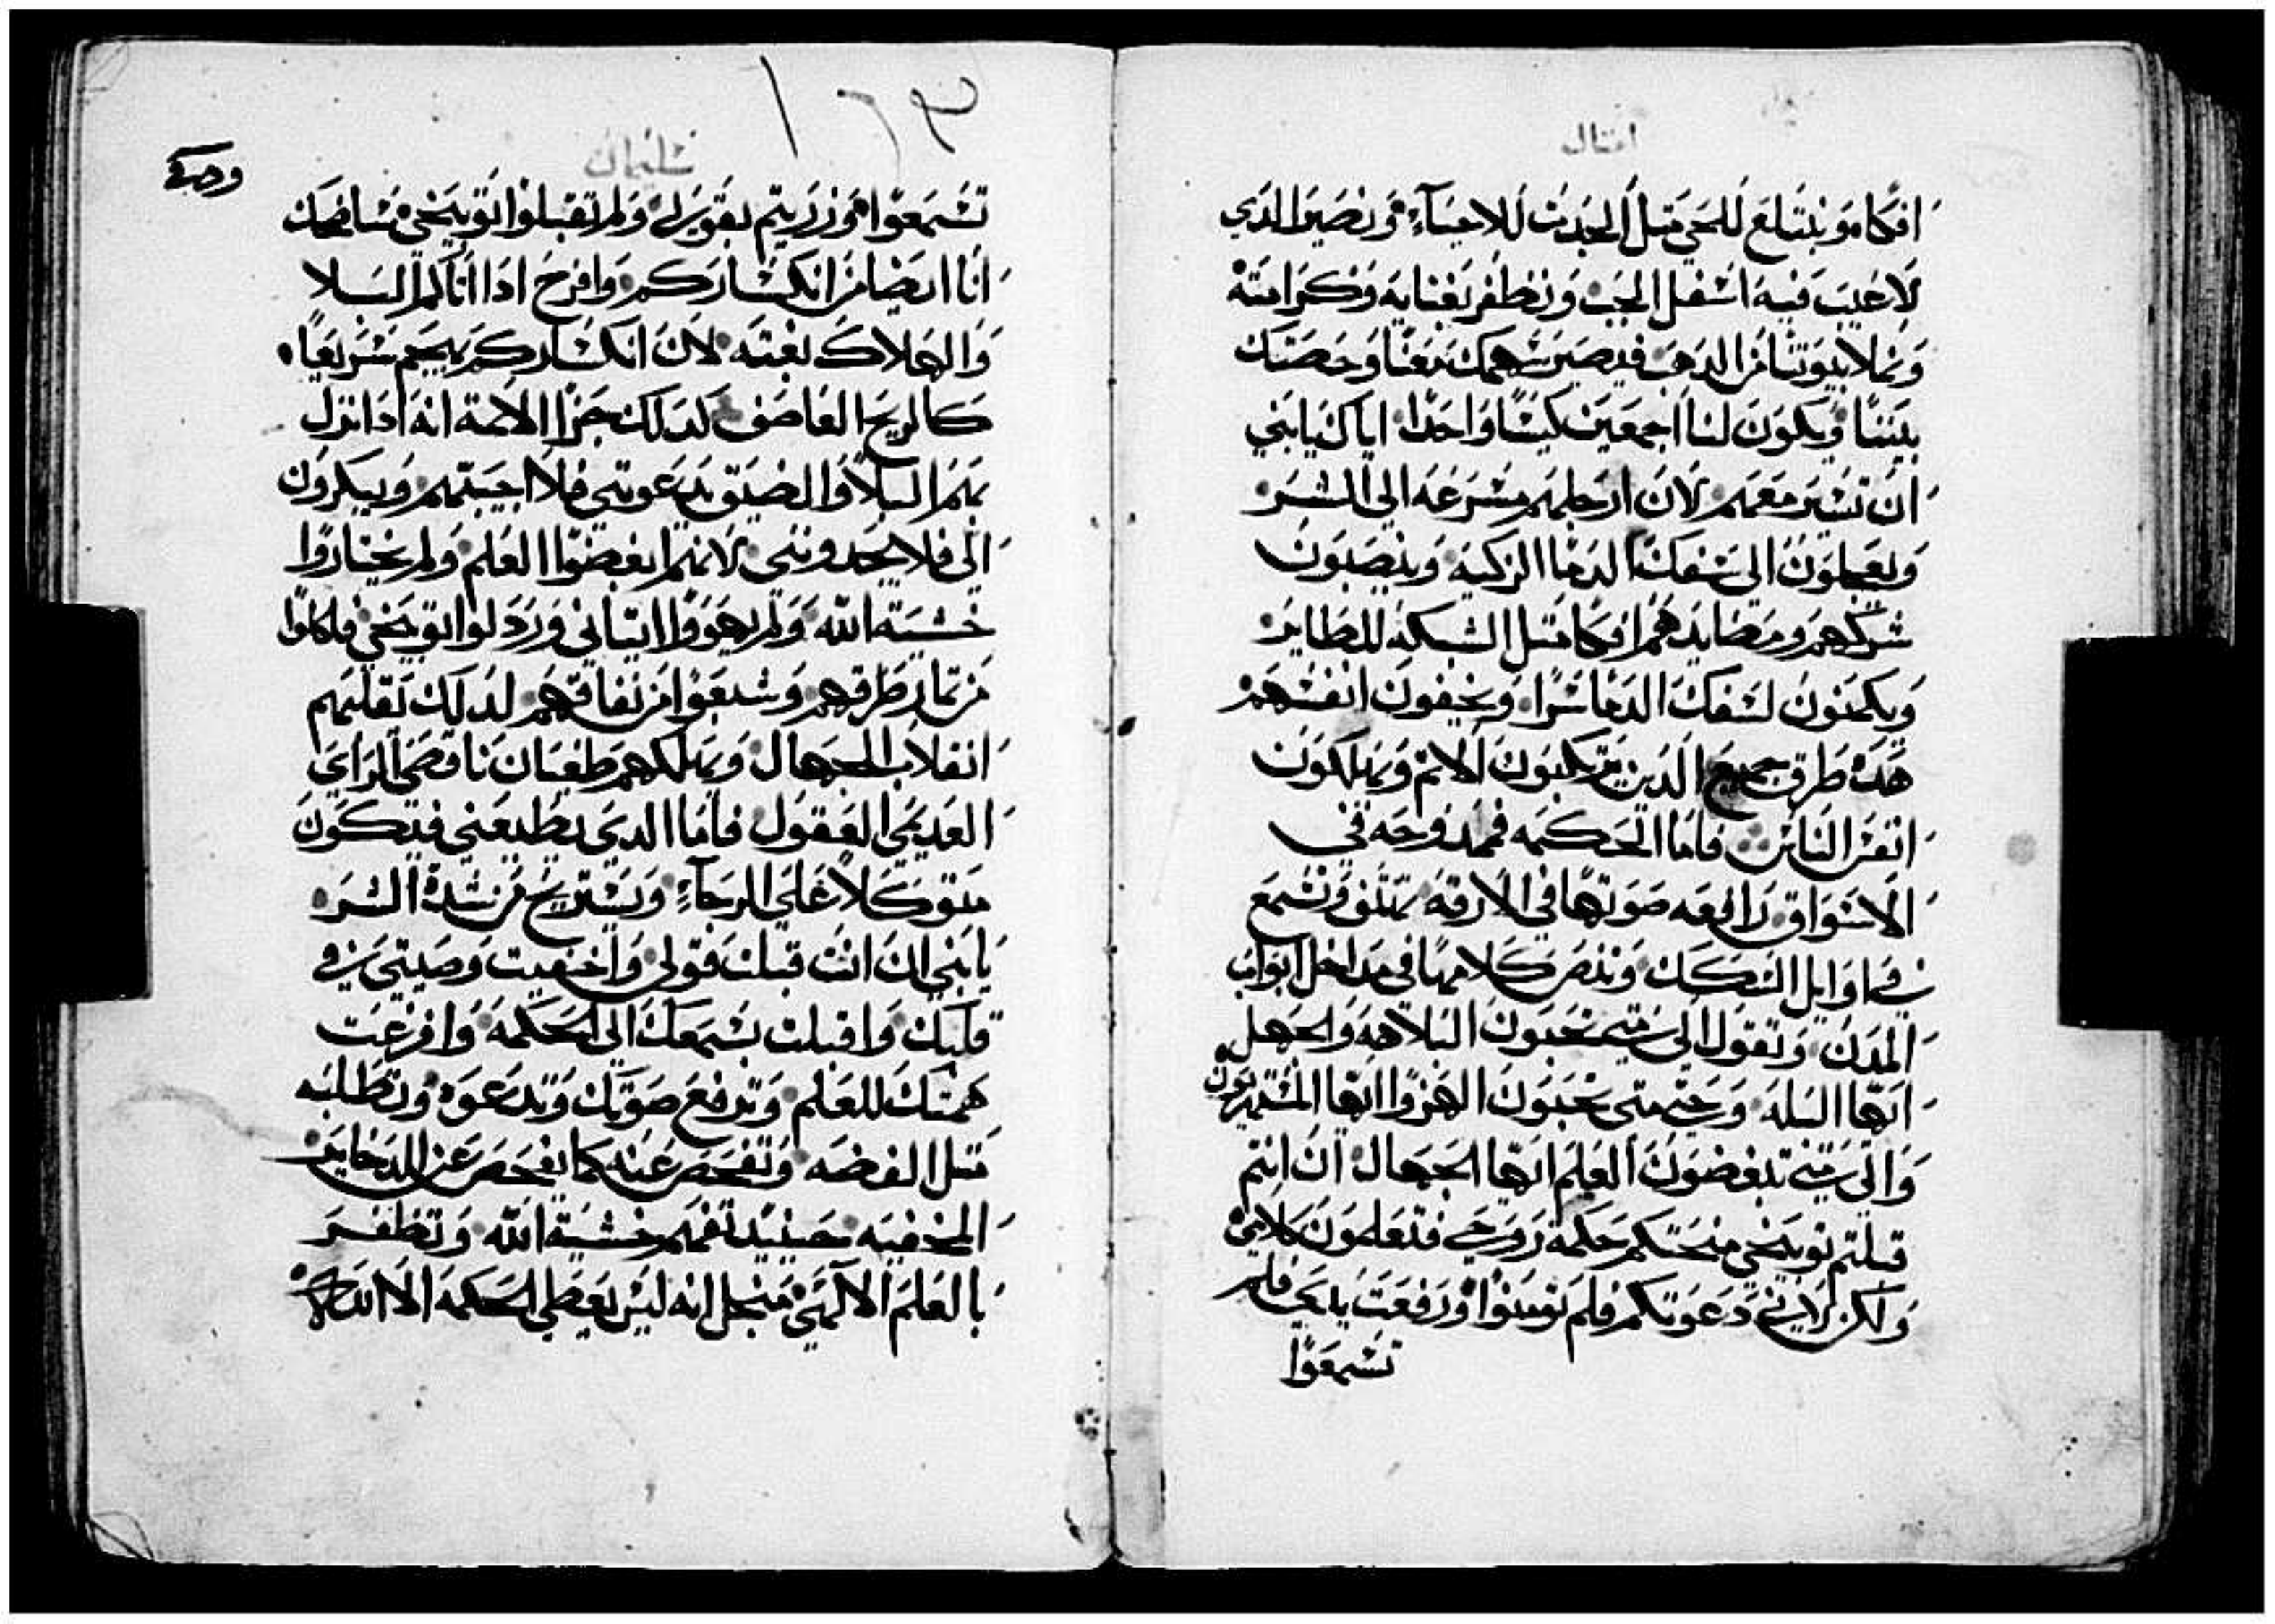 امتال
افكاه ونبتلع للحي متل الجديت للاحياء ونصير الدي
لا عيب فيه اسفل الجب ونظفر بغنايه وكرامته
ونملا بيوتنا من الدهب فيصير سهمك معنا وحصتك
بيننا ويكون لنا اجمعين كيسا واحدا اياك يابني
ان تسير معهم لان ارجلهم مسرعه الي الشر
ويعجلون الي سفك الدما الزكيه وينصبون
شركهم ومصايدهم افكا متل الشبكه للطاير
ويكمنون لسفك الدما سرا ويخفون انفسهم
هده طرق جميع الدين يرتكبون الاتم ويهلكون
انفس الناس فاما الحكمه فممدوحه في
الاسواق رافعه صوتها في الازقه تهتف وتسمع
في اوايل السكك وتنصر كلامها في مداخل ابواب
المدن وتقول الي متي تحبون البلاهه والجهل
ايها البله وحتي متي تحبون الهزوا ايها المستهزون
والي متي تبغضون العلم ايها الجهال ان انتم
قبلتم توبيخي منحتكم حكمة روحي فتعلمون كلامي
ولكن لاني دعوتكم فلم تومنوا ورفعت يدي فلم
تسمعوا
سليمان
وحكمة
تسمعوا وزريتم بقولي ولم تقبلوا توبيخي فساضحك
انا ايضا من انكساركم وافرح ادا اتاكم البلا
والهلاك بغته لان انكساركم يهجم سريعا
كالريح العاصف كدلك جزا الاتمة انه ادا نزل
بهم البلا والضيق يدعوني فلا اجيبهم ويبكرون
الي فلا يجدونني لانهم ابغضوا العلم ولم يختاروا
خشية الله ولم يهووا اتياني وردلوا توبيخي فاكلوا
من تمار طرقهم وشبعوا من نفاقهم لدلك تقلبهم
انقلاب الجهال ويهلكهم طغيان ناقصي الراي
العديمي العقول فاما الدي يطيعني فيكون
متوكلا علي الرجاء ويستريح من شدة الشر
يابني ان انت قبلت قولي واخفيت وصيتي في
قلبك واقبلت بسمعك الي الحكمه وافرغت
همتك للعلم وترفع صوتك وتدعوه وتطلبه
متل الفضه وتفحص عنه كما يفحص عن الدخاير
المخفيه حينيد تفهم خشية الله وتظفر
بالعلم الالهي من اجل انه ليس يعطي الحكمه الا الله